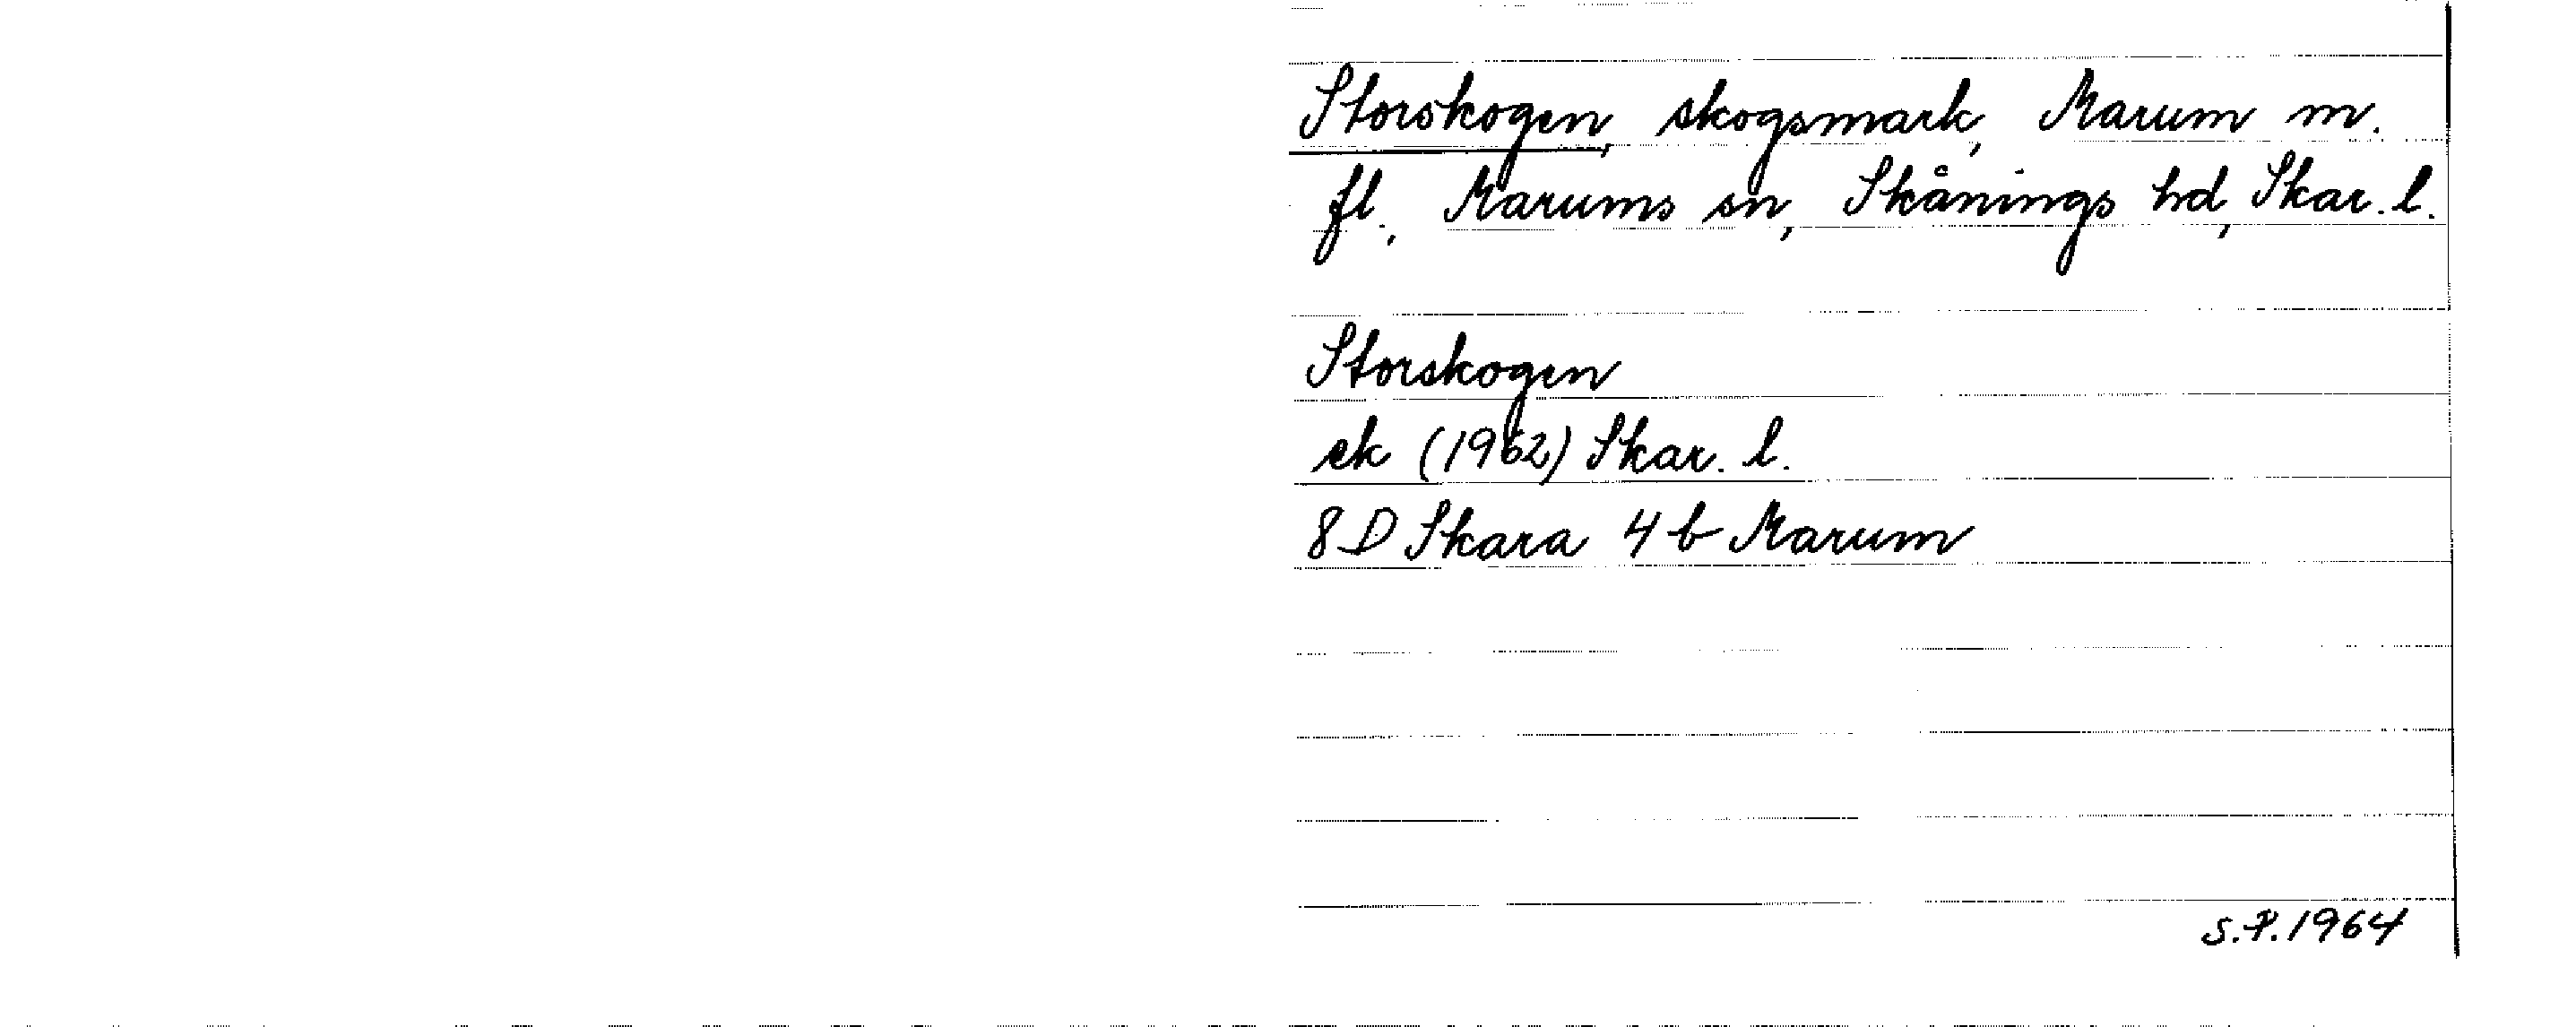 Storskogen, skogsmark, Marum m.
fl., Marums sn, Skånings hd, Skar. l.
Storskogen
ek (1962) Skar. l.
8D Skara 4 b Marum
S.P. 1964